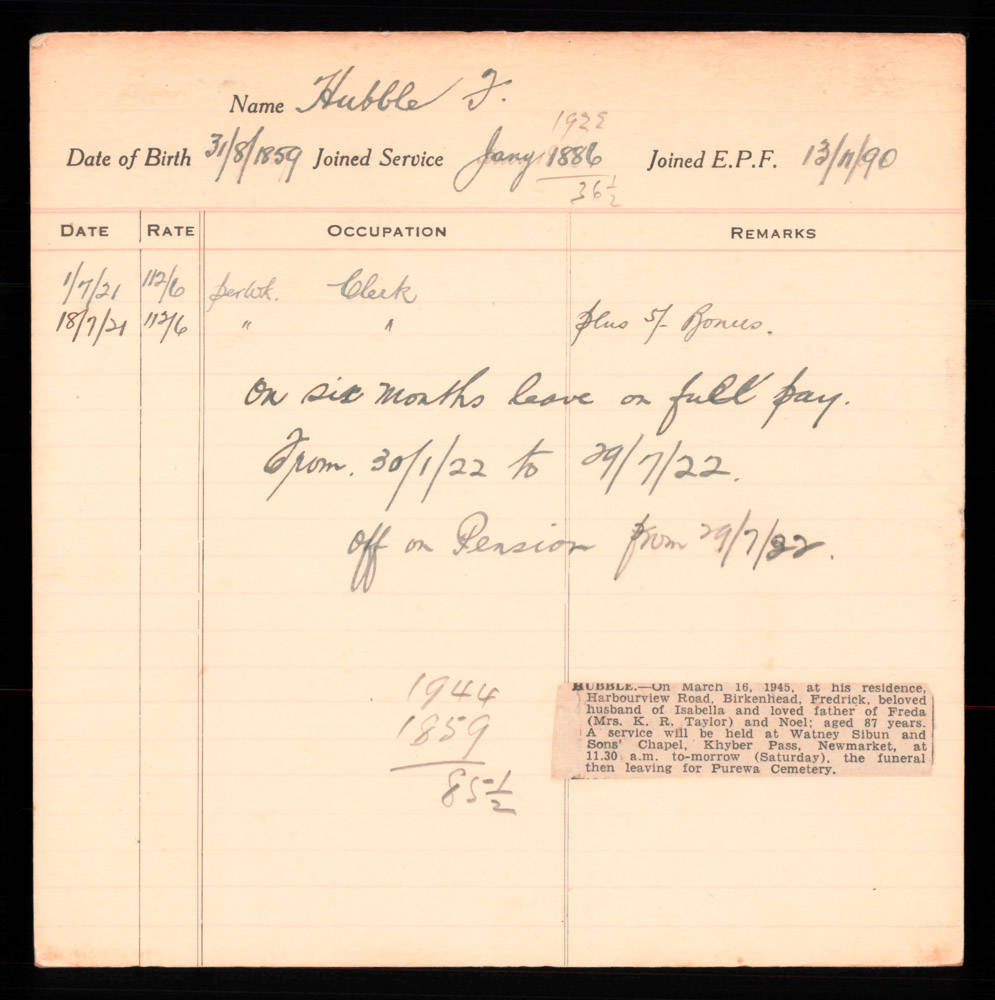 Name Hubble F.
1922
Date of Birth 31/8/1859 Joined Service Jany 1886 Joined E.P.F. 13/11/90
36 1/2
DATE RATE OCCUPATION REMARKS
1/7/21 112/6 per wk. Clerk
18/7/21 112/6 " " plus 5/- Bonus.
On six months leave on full pay.
From. 30/1/22 to 29/7/22.
off on Pension from 29/7/22.
1944
1859
85 1/2
HUBBLE.—On March 16, 1945, at his residence,
Harbourview Road, Birkenhead, Fredrick, beloved
husband of Isabella and loved father of Freda
(Mrs. K. R. Taylor) and Noel; aged 87 years.
A service will be held at Watney Sibun and
Sons' Chapel, Khyber Pass, Newmarket, at
11.30 a.m. to-morrow (Saturday), the funeral
then leaving for Purewa Cemetery.